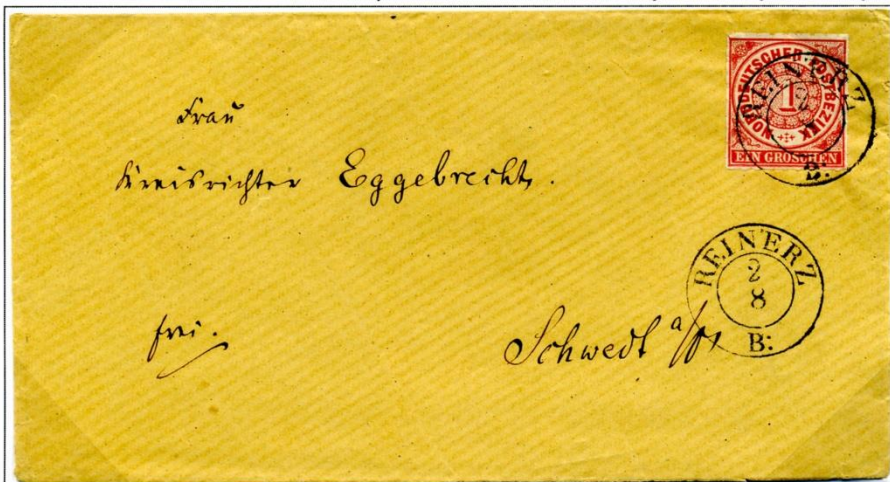 NORDDEUTSCHER POSTBEZIRK
1
EIN GROSCHEN
REINERZ
2
B:
Frau
Kreisrichter Eggebrecht.
REINERZ
2
8
B:
frei.
Schwedt a/O